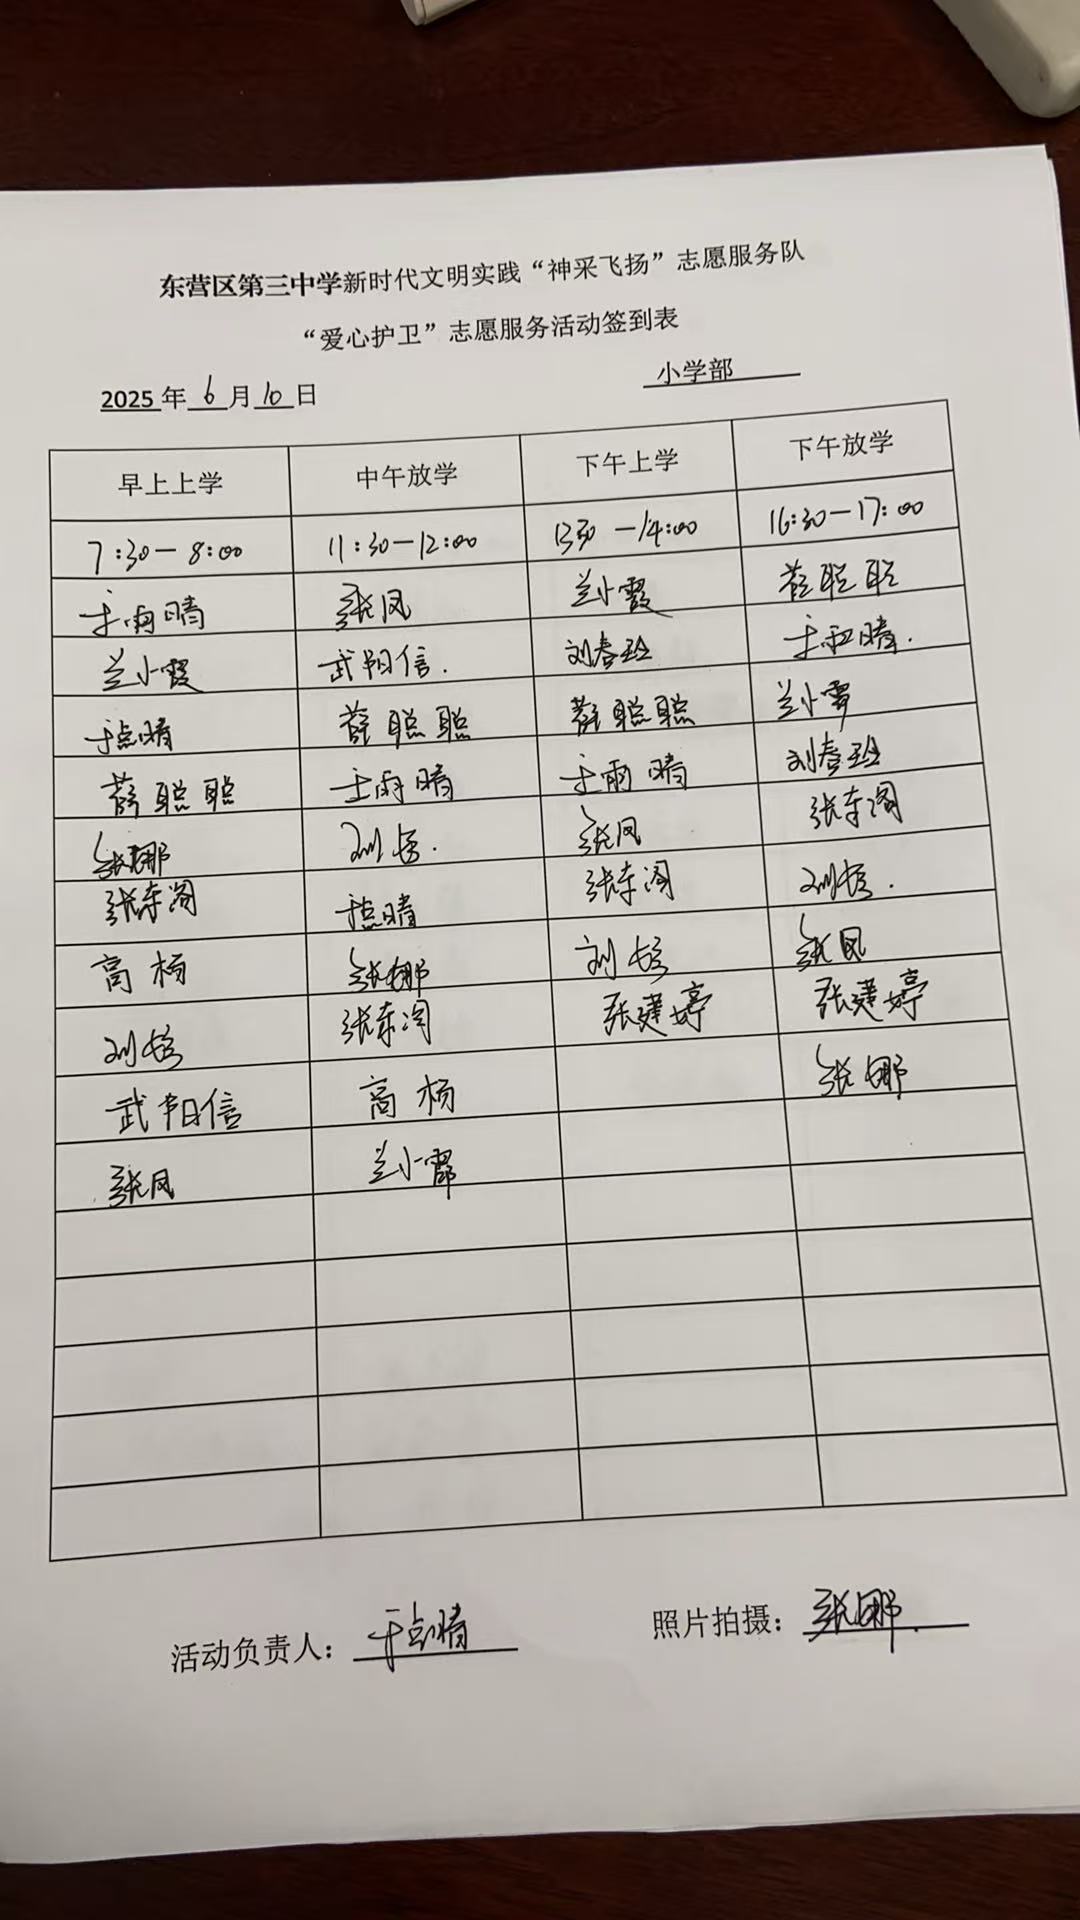 东营区第三中学新时代文明实践“神采飞扬”志愿服务队
“爱心护卫”志愿服务活动签到表
2025年 6 月 10 日 小学部
早上上学 中午放学 下午上学 下午放学
7:30-8:00 11:30-12:00 13:30-14:00 16:30-17:00
王雨晴 张凤 兰小霞 薛聪聪
兰小霞 武阳信. 刘春玲 王雨晴.
于点晴 薛聪聪 薛聪聪 兰小霞
薛聪聪 王雨晴 王雨晴 刘春玲
张娜 刘 张凤 张东阁
张东阁 于点晴 张东阁 刘
高杨 张娜 刘 张凤
刘 张东阁 张建婷 张建婷
武阳信 高杨 张娜
张凤 兰小霞
活动负责人：于点晴 照片拍摄：张娜